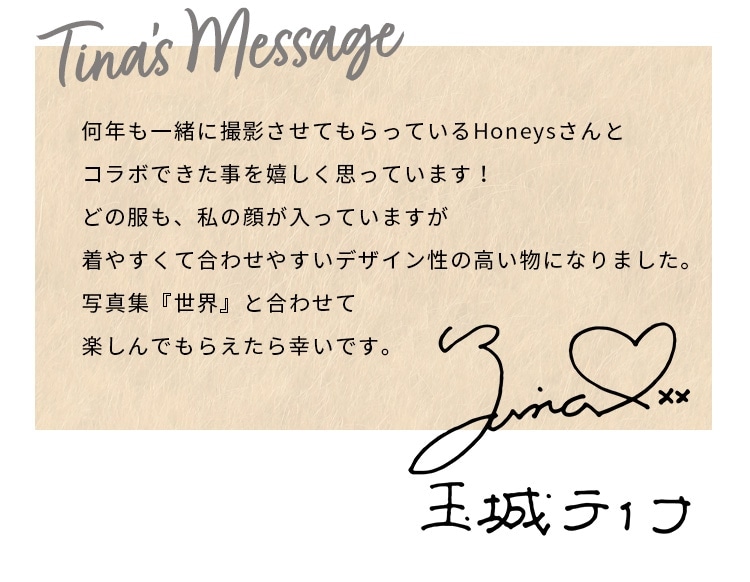 Tina's Message
何年も一緒に撮影させてもらっているHoneysさんと
コラボできた事を嬉しく思っています！
どの服も、私の顔が入っていますが
着やすくて合わせやすいデザイン性の高い物になりました。
写真集『世界』と合わせて
楽しんでもらえたら幸いです。
Tina xx
玉城ティナ